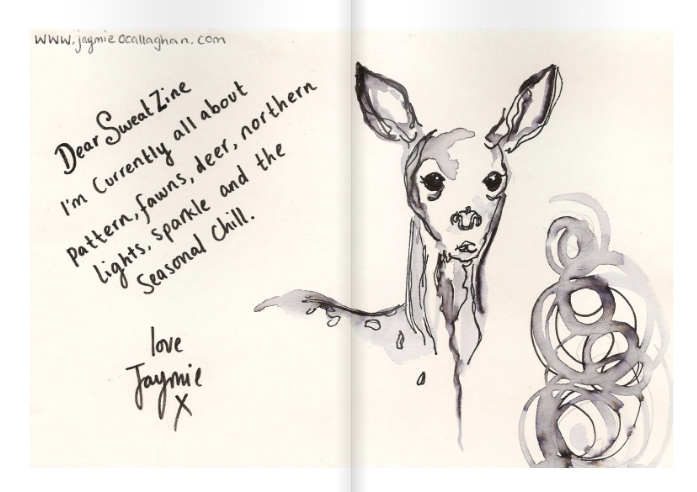 www.jaymieocallaghan.com
Dear Sweat Zine
I'm Currently all about
pattern, fawns, deer, northern
lights, sparkle and the
Seasonal Chill.
love
Jaymie
X